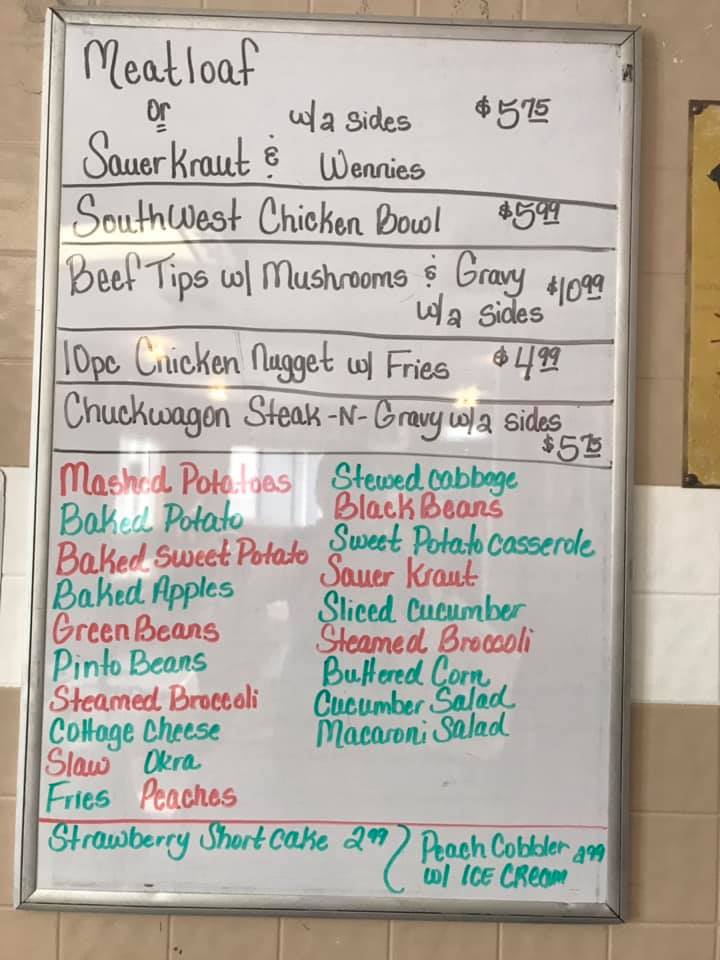 Meatloaf
or
w/2 sides $5.75
SauerKraut & Wennies
Southwest Chicken Bowl $5.99
Beef Tips w/ Mushrooms & Gravy $10.99
w/2 sides
10pc Chicken Nugget w/ Fries $4.99
Chuckwagon Steak -N- Gravy w/2 sides
$5.75
Mashed Potatoes
Baked Potato
Baked Sweet Potato
Baked Apples
Green Beans
Pinto Beans
Steamed Broccoli
Cottage Cheese
Slaw Okra
Fries Peaches
Stewed Cabbage
Black Beans
Sweet Potato Casserole
Sauer Kraut
Sliced Cucumber
Steamed Broccoli
Buttered Corn
Cucumber Salad
Macaroni Salad
Strawberry Short cake 2.99
Peach Cobbler 2.99
w/ ICE CReam